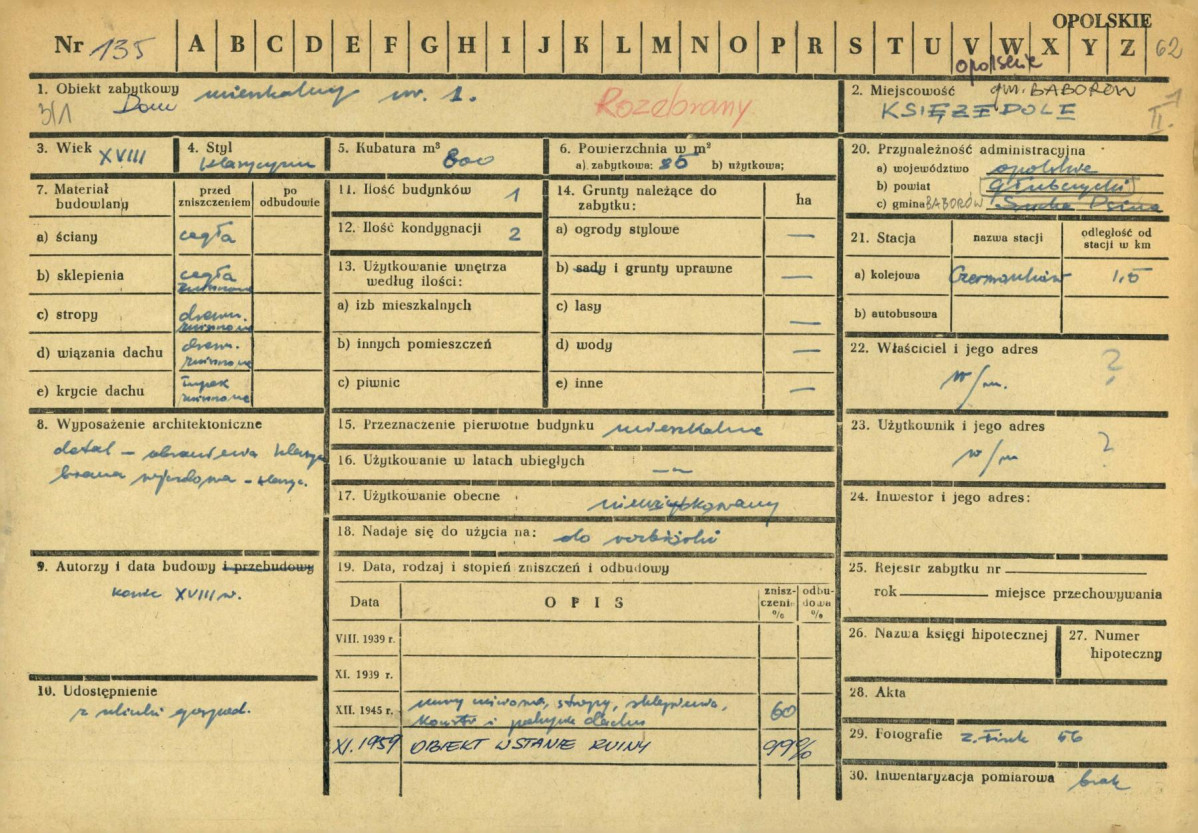 OPOLSKIE
Nr 135 A B C D E F G H I J K L M N O P R S T U V W X Y Z 62
opolskie
1. Obiekt zabytkowy
Dom mieszkalny nr. 1.
3/1
Rozebrany
2. Miejscowość gm. BABORÓW
KSIĘŻE POLE
II.
3. Wiek XVIII
4. Styl klasycyzm
5. Kubatura m³ 800
6. Powierzchnia w m²
a) zabytkowa: 85 b) użytkowa;
7. Materiał budowlany
przed zniszczeniem
po odbudowie
a) ściany cegła
b) sklepienia cegła
zniszczone
c) stropy drewn.
zniszczone
d) wiązania dachu drewn.
zniszczone
e) krycie dachu łupek
zniszczone
8. Wyposażenie architektoniczne
detal – obramienia
brama wjazdowa – klasyc.
9. Autorzy i data budowy i przebudowy
koniec XVIII w.
10. Udostępnienie
z uliczki gospod.
11. Ilość budynków 1
12. Ilość kondygnacji 2
13. Użytkowanie wnętrza
według ilości:
a) izb mieszkalnych
b) innych pomieszczeń
c) piwnic
14. Grunty należące do
zabytku:
ha
a) ogrody stylowe —
b) sady i grunty uprawne —
c) lasy —
d) wody —
e) inne —
15. Przeznaczenie pierwotne budynku mieszkalne
16. Użytkowanie w latach ubiegłych —„—
17. Użytkowanie obecne nieużytkowany
18. Nadaje się do użycia na: do rozbiórki
19. Data, rodzaj i stopień zniszczeń i odbudowy
Data
OPIS
znisz-
czenie
%
odbu-
dowa
%
VIII. 1939 r.
XI. 1939 r.
XII. 1945 r. stropy, sklepienia,
konstr i pokrycie dachu 60
XI. 1959 OBIEKT W STANIE RUINY 99%
20. Przynależność administracyjna
a) województwo opolskie
b) powiat głubczycki
c) gmina BABORÓW Sucha Psina
21. Stacja
nazwa stacji
odległość od
stacji w km
a) kolejowa 1,5
b) autobusowa
22. Właściciel i jego adres
w/m. ?
23. Użytkownik i jego adres
w/m ?
24. Inwestor i jego adres:
25. Rejestr zabytku nr
rok miejsce przechowywania
26. Nazwa księgi hipotecznej
27. Numer
hipoteczny
28. Akta
29. Fotografie 56
30. Inwentaryzacja pomiarowa brak